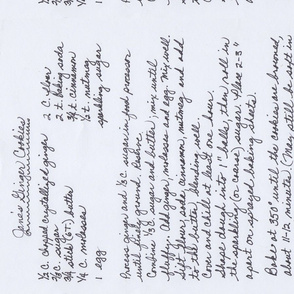 Jena's Ginger Cookies
1/2 C. chopped crystallized ginger
2/3 C. sugar
3/4 stick (6T) butter
1/4 C. molasses
1 egg
2 C. flour
2 t. baking soda
3/4 t. cinnamon
1/2 t. nutmeg
sparkling sugar
Process ginger and 1/3 C. sugar in food processor
until finely ground. Reserve.
Combine 1/3 C. sugar and butter; mix until
fluffy. Add ginger, molasses and egg. mix well.
Sift flour, soda, cinnamon, nutmeg and add
to the butter, blending well.
Cover and chill at least one hour.
Shape dough into 1" balls, then roll in
the sparkling (or coarse) sugar. Place 2-3"
apart on sprayed baking sheets.
Bake at 350° until the cookies are browned,
about 11-12 minutes. (May still be soft in